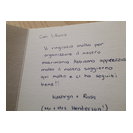 Cari Liliana
Vi ringrazio molto per
organizzare il nostro
matrimonio. Abbiamo apprezzato
molto il nostro soggiorno
qui molto e ci ha seguiti
bene!
Kathryn + Ross
(Mr + Mrs Henderson)